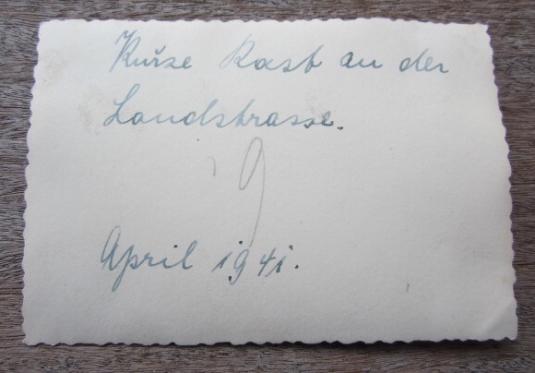 Kurze Rast an der
Landstrasse.
19
April 1941.